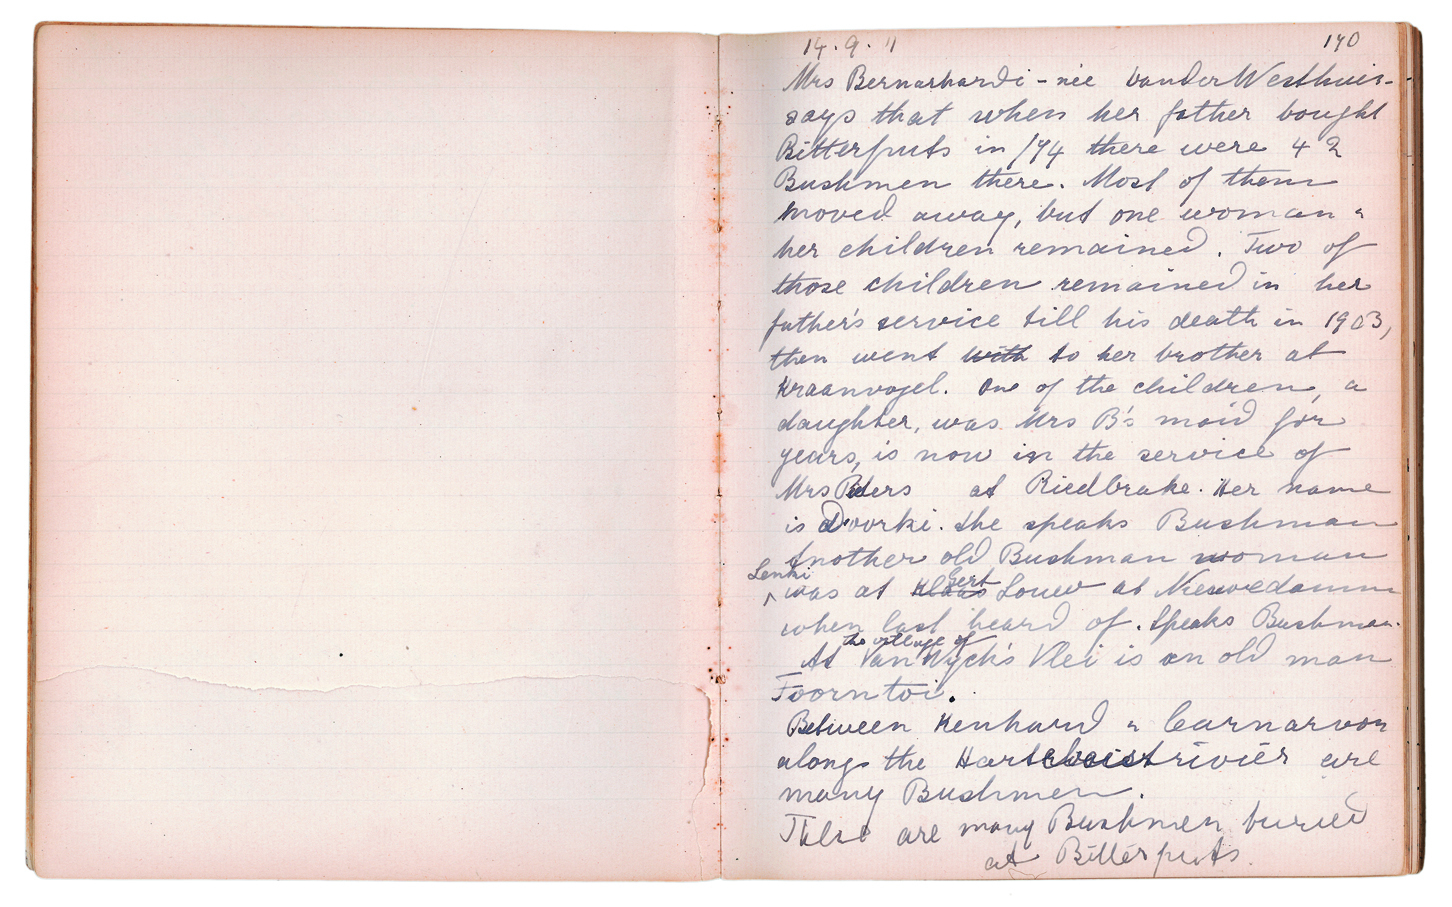 14.9.11 170
Mrs Bernarhardi - née VanderWesthuis-
says that when her father bought
Bitterputs in /74 there were 42
Bushmen there. Most of them
moved away, but one woman &
her children remained. Two of
those children remained in her
father's service till his death in 1903,
then went with to her brother at
Kraanvogel. One of the children, a
daughter, was Mrs B's maid for
years, is now in the service of
Mrs Peters at Rietbrake. Her name
is Doorki. She speaks Bushman
Another old Bushman woman
Lenki Gert
was at Klaas Louw at Niewedamm
when last heard of. Speaks Bushman.
the village of
At VanWyck's Vlei is an old man
Toorntoi.
Between Kenhard & Carnarvon
along the Hartebeist rivier are
many Bushmen.
There are many Bushmen buried
at Bitterputs.